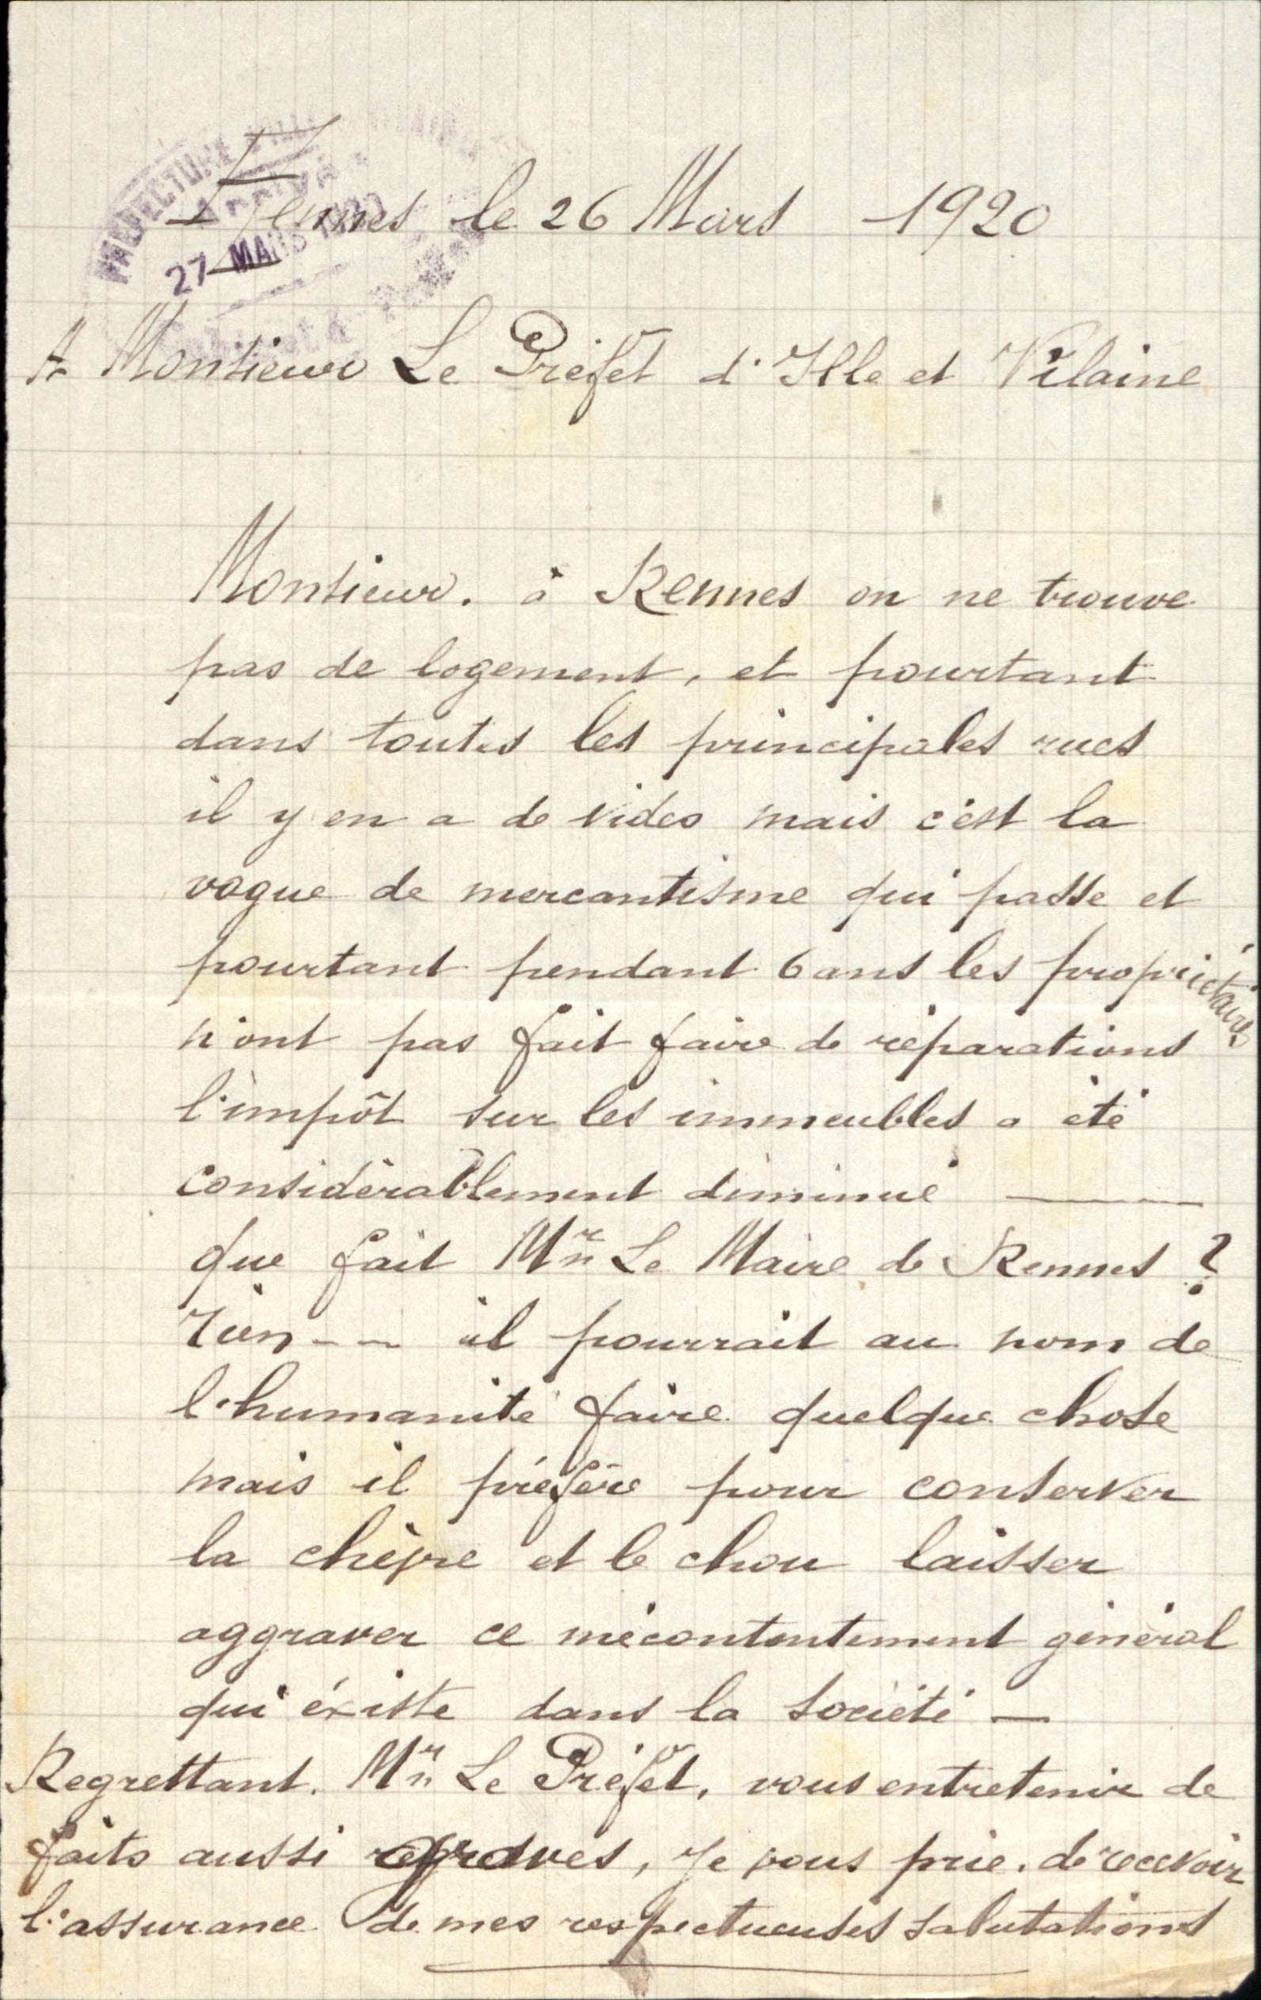 PRÉFECTURE D'ILLE
ARRIVÉE
27 MARS 1920
Rennes le 26 Mars 1920
A Monsieur Le Préfet d'Ille et Vilaine
Monsieur. à Rennes on ne trouve
pas de logement, et pourtant
dans toutes les principales rues
il y en a de vides mais c'est la
vague de mercantisme qui passe et
pourtant pendant 6 ans les propriétaires
n'ont pas fait faire de réparations
l'impôt sur les immeubles a été
considérablement diminué ———
que fait Mr Le Maire de Rennes ?
rien - - il pourrait au nom de
l'humanité faire quelque chose
mais il préfère pour conserver
la chèvre et le chou laisser
aggraver ce mécontentement général
qui éxiste dans la société —
Regrettant. Mr Le Préfet, vous entretenir de
faits aussi graves, je vous prie. de recevoir
l'assurance de mes respectueuses salutations